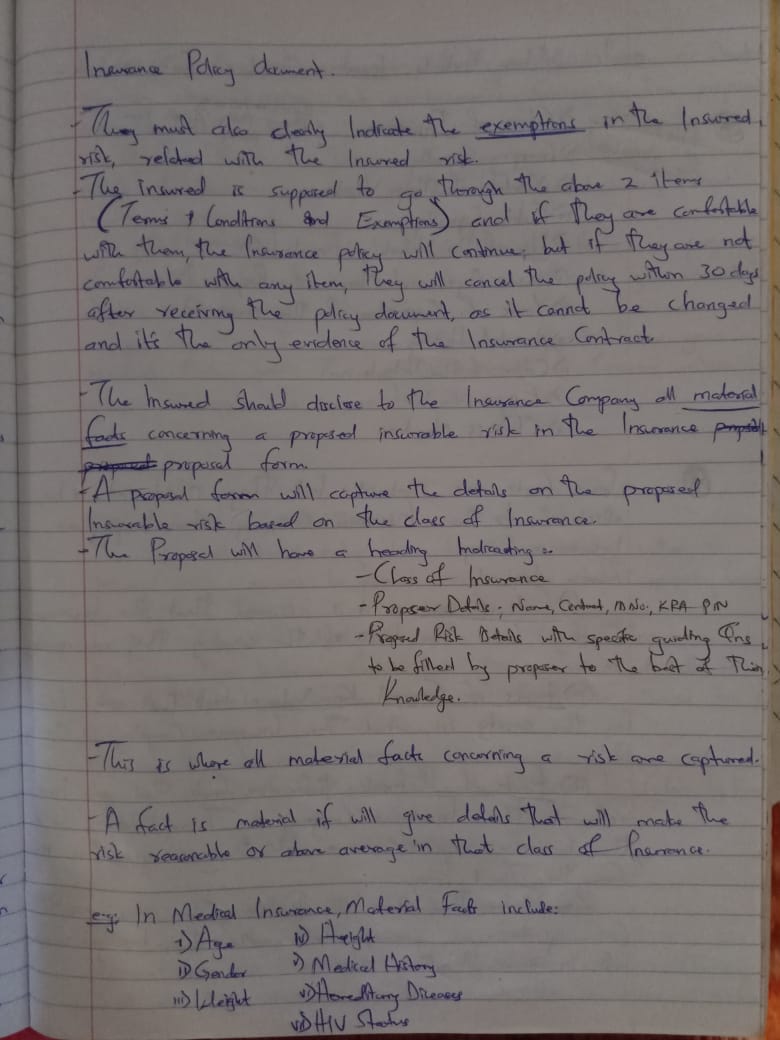 Insurance Policy document.
- They must also clearly Indicate the exemptions in the Insured
risk, related with the Insured risk.
- The insured is supposed to go through the above 2 items
(Terms & Conditions and Exemptions) and if they are comfortable
with them, the Insurance policy will continue, but if they are not
comfortable with any item, they will cancel the policy within 30 days
after receiving the policy document, as it cannot be changed
and it's the only evidence of the Insurance Contract.
- The Insured should disclose to the Insurance Company all material
facts concerning a proposed insurable risk in the Insurance
proposal form.
- A proposal form will capture the details on the proposed
Insurable risk based on the class of Insurance.
- The Proposal will have a heading Indicating :-
- Class of Insurance
- Proposer Details; Name, Contact, M No:, KRA PIN
- Proposed Risk Details with specific guiding Qns
to be filled by proposer to the best of Their
Knowledge.
- This is where all material facts concerning a risk are captured.
- A fact is material if will give details that will make the
risk reasonable or above average in that class of Insurance.
e.g; In Medical Insurance, Material Facts include:
i) Age iv) Height
ii) Gender v) Medical History
iii) Weight vi) Hereditary Diseases
vii) HIV Status